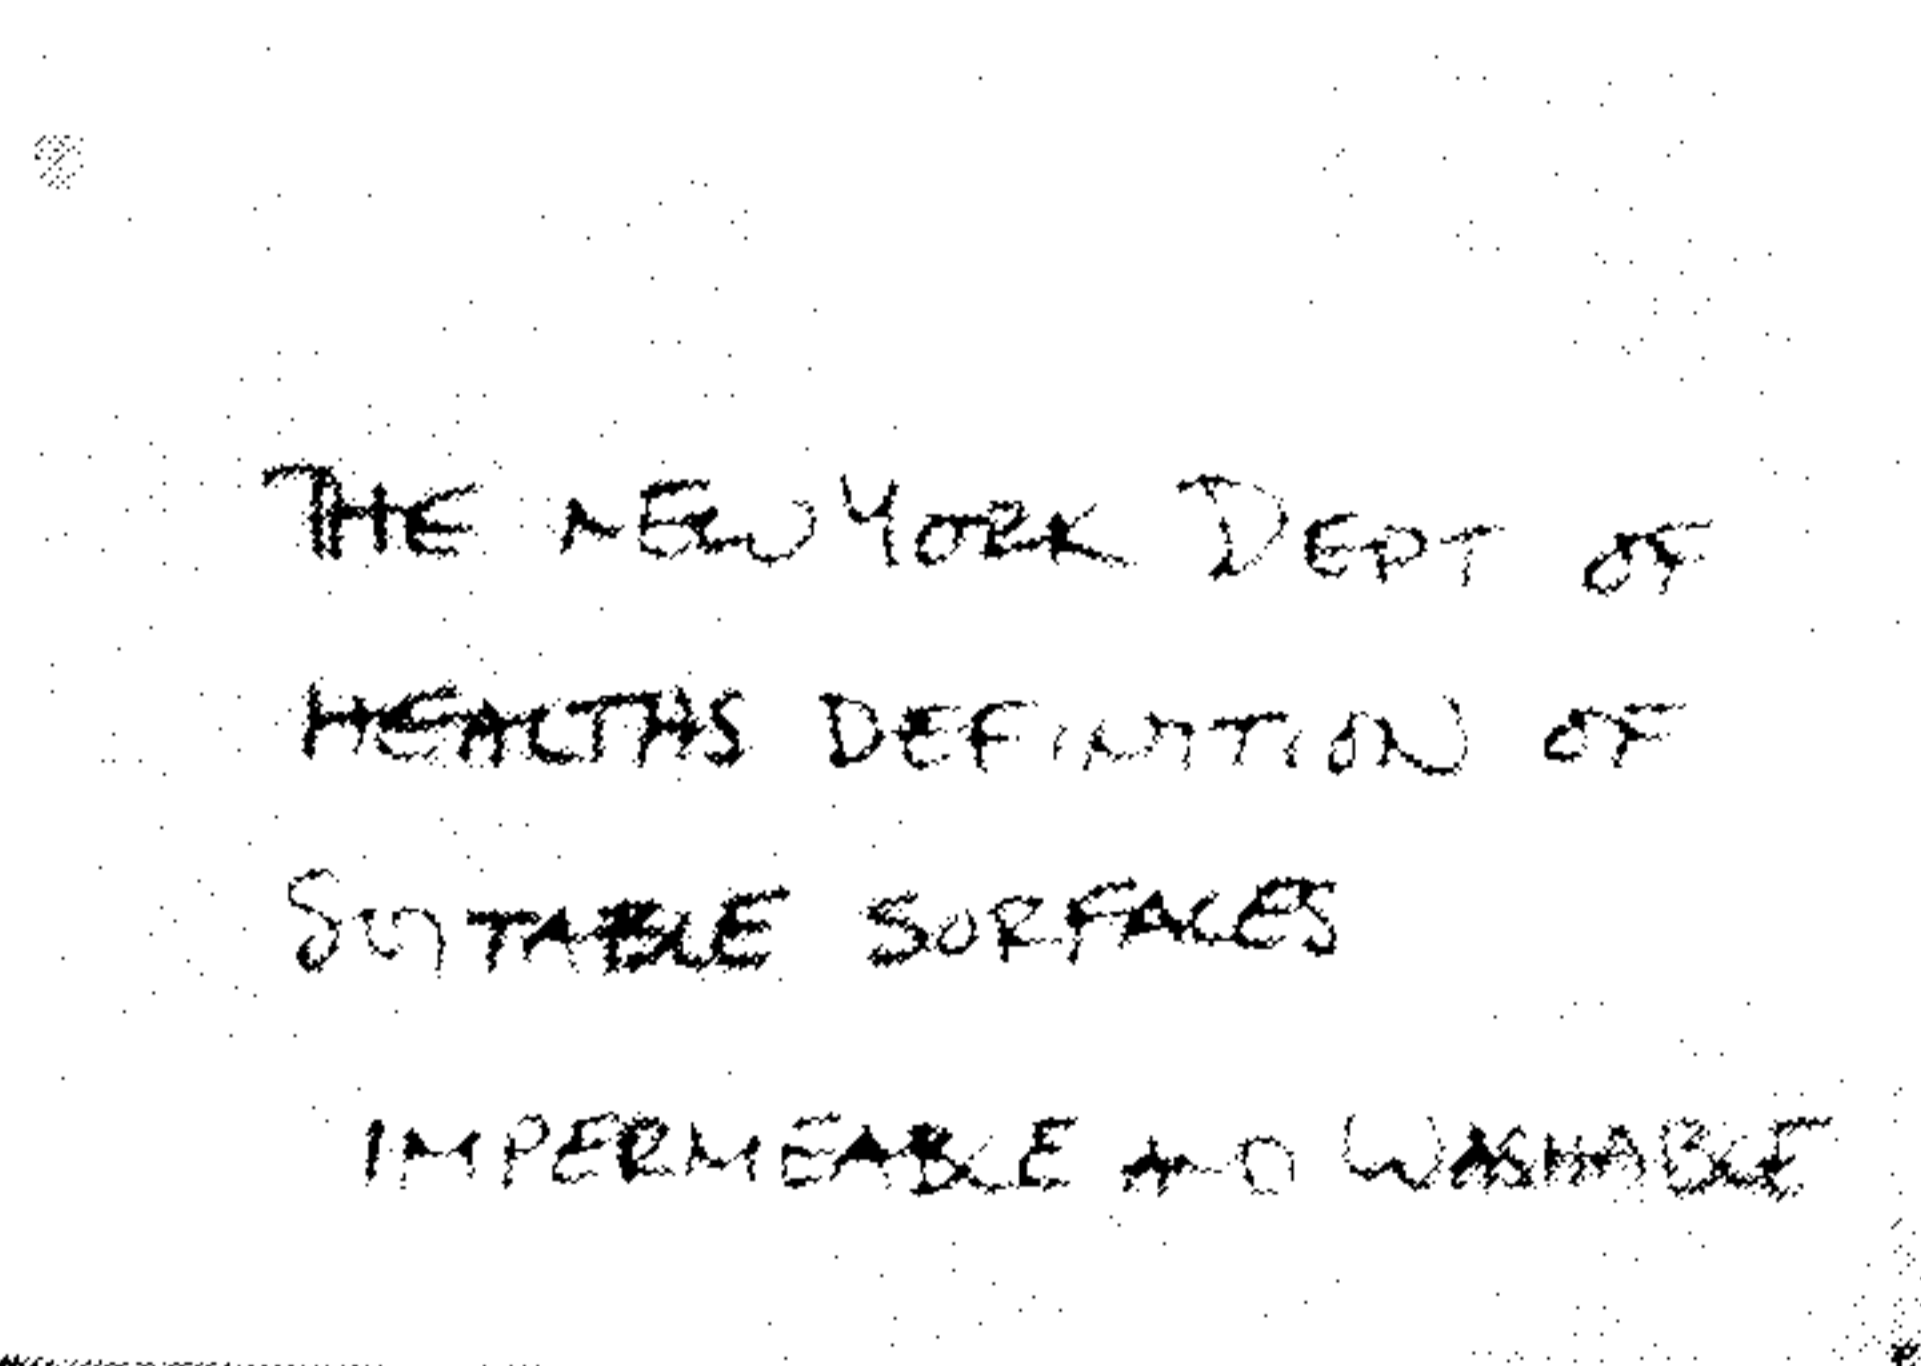 THE NEW YORK DEPT OF
HEALTHS DEFINITION OF
SUITABLE SURFACES
IMPERMEABLE AND WASHABLE